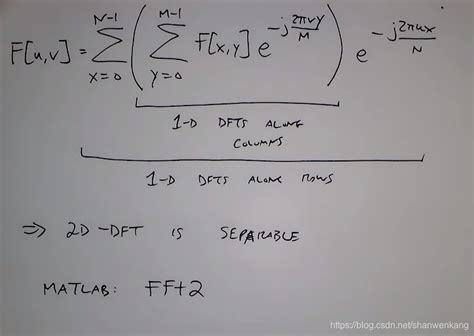 F[u,v] = \sum_{x=0}^{N-1} ( \sum_{y=0}^{M-1} F[x,y] e^{-j\frac{2πvy}{M}} ) e^{-j\frac{2πux}{N}}
1-D DFTS ALONG
COLUMNS
1-D DFTS ALONG ROWS
⇒ 2D-DFT IS SEPARABLE
MATLAB: FFt2
https://blog.csdn.net/shanwenkang